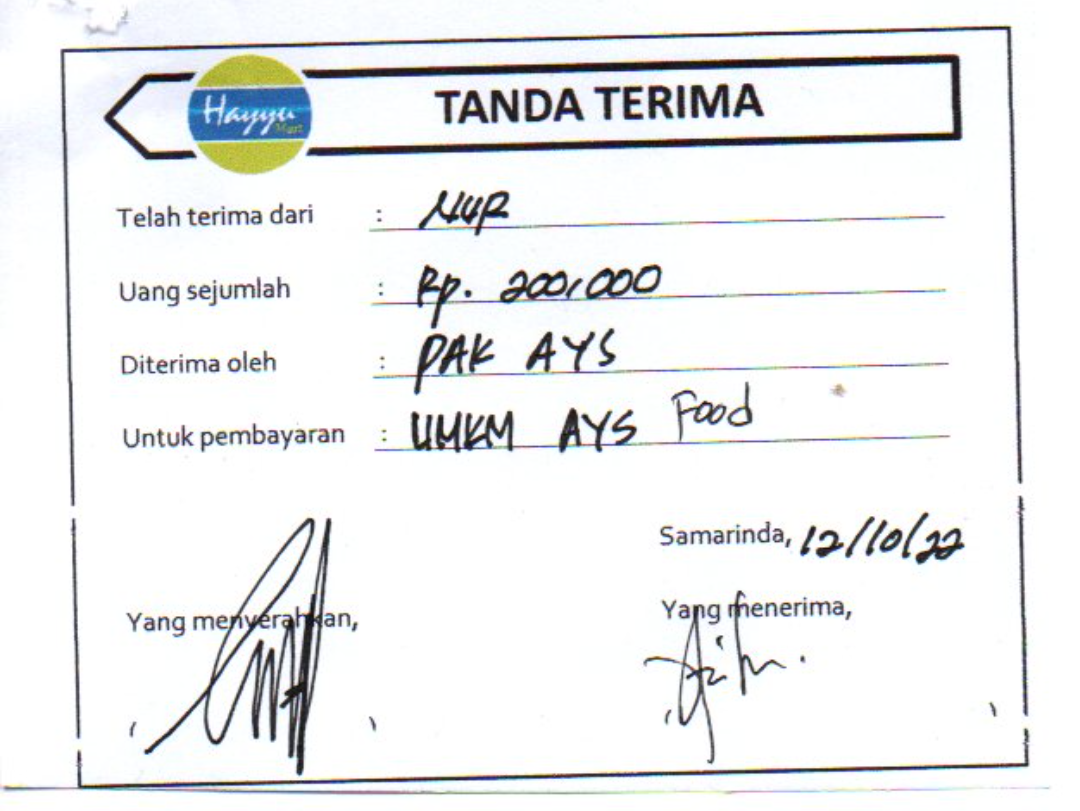 Hayyu
Mart
TANDA TERIMA
Telah terima dari : NUR
Uang sejumlah : Rp. 200,000
Diterima oleh : PAK AYS
Untuk pembayaran : UMKM AYS Food
Samarinda, 12/10/22
Yang menyerahkan,
Yang menerima,